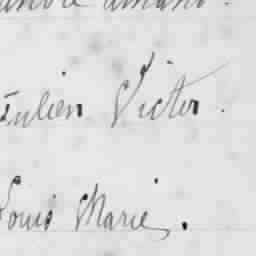 Julien Victor.
Louis Marie.